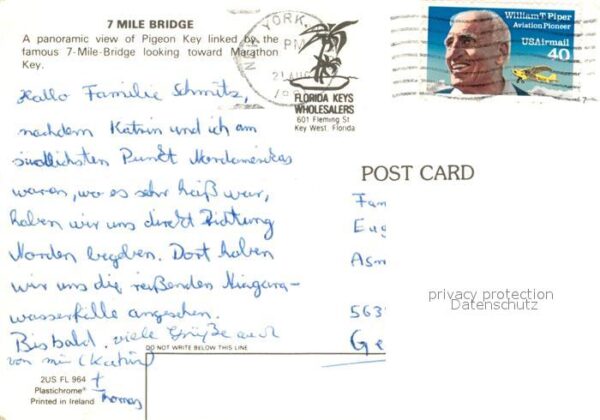 7 MILE BRIDGE
A panoramic view of Pigeon Key linked by the
famous 7-Mile-Bridge looking toward Marathon
Key.
NEW YORK,
PM
21 AUG
FLORIDA KEYS
WHOLESALERS
601 Fleming St
Key West Florida
William T. Piper
Aviation Pioneer
USAirmail
40
Hallo Familie Schmitz,
nachdem Katrin und ich am
südlichsten Punkt Nordamerikas
waren, wo es sehr heiß war,
haben wir uns direkt Richtung
Norden begeben. Dort haben
wir uns die reißenden Niagara-
wasserfälle angesehen.
Bis bald, viele Grüße auch
von mir (Katrin)
+
Thomas
POST CARD
Fam
Eug
Asm
563
Ge
privacy protection
Datenschutz
DO NOT WRITE BELOW THIS LINE
2US FL 964
Plastichrome®
Printed in Ireland